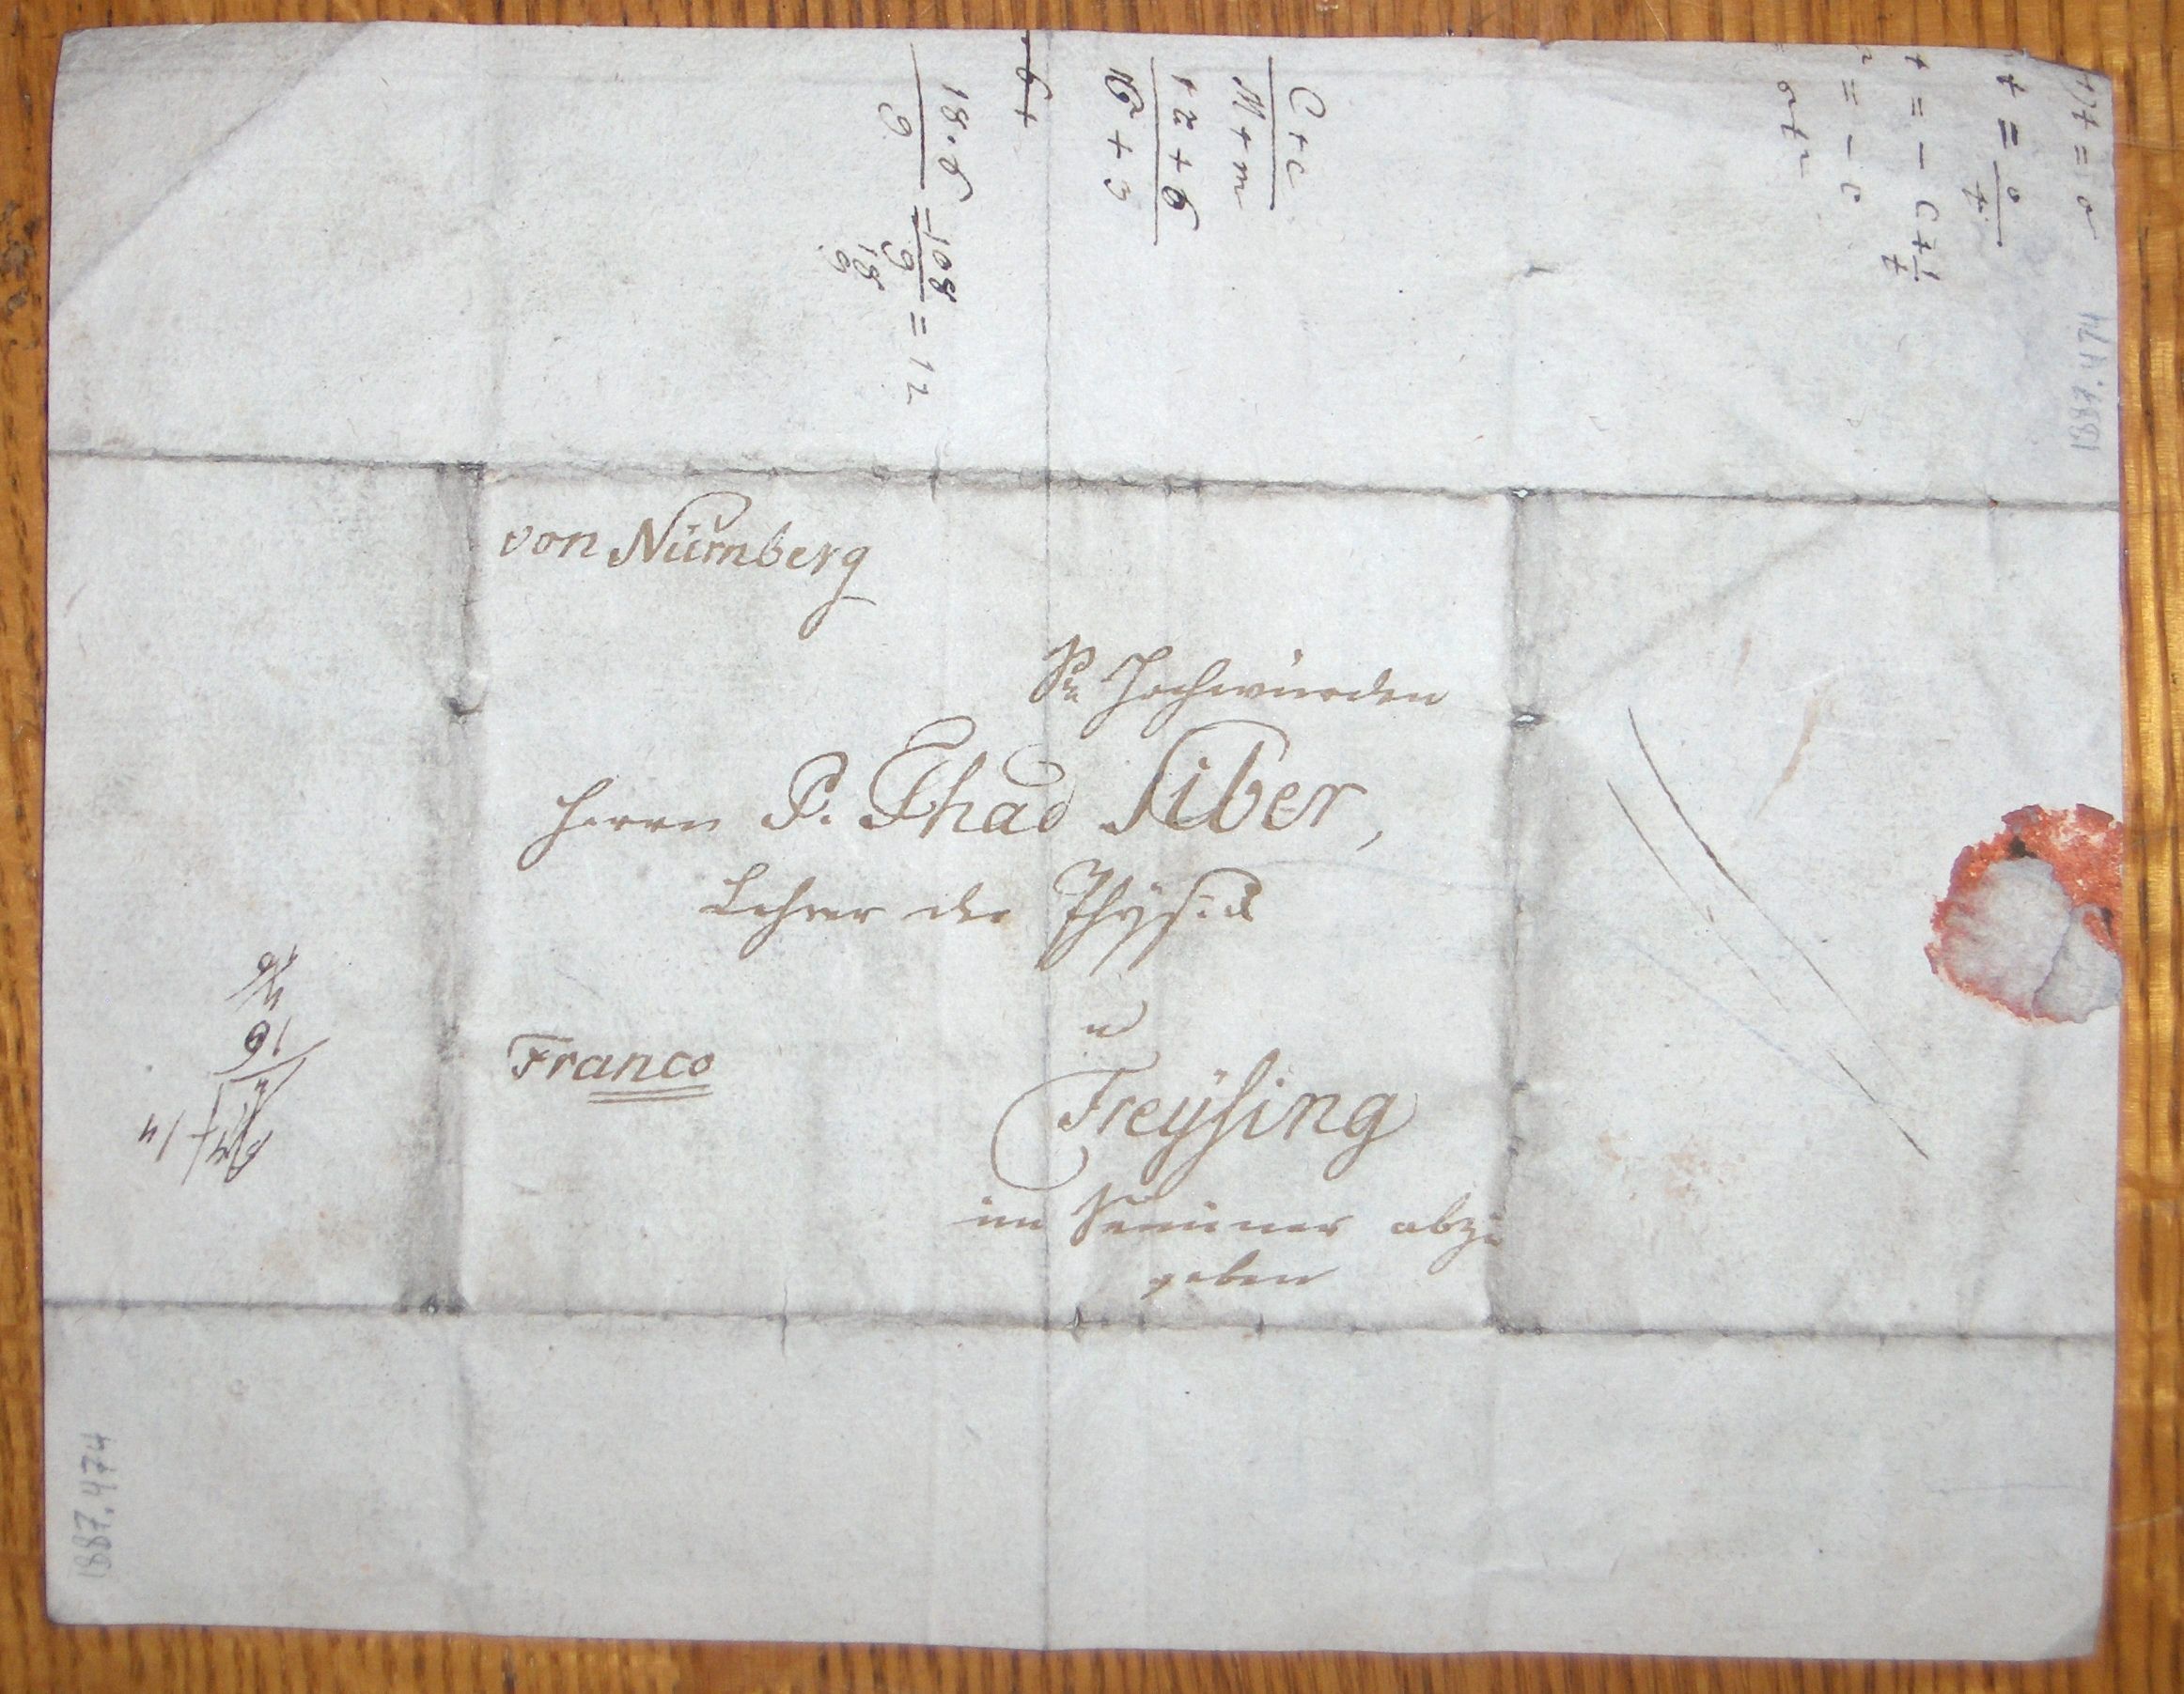 von Nürnberg
Sr Hochwürden
Herrn P. Thad Siber,
Lehrer der Physik
in
Freysing
im Seminar abzu
geben
Franco
C + c
M + m
12 + 6
16 + 3
18 . 6 = 108 = 12
9 9
18
1887.474
1887.474